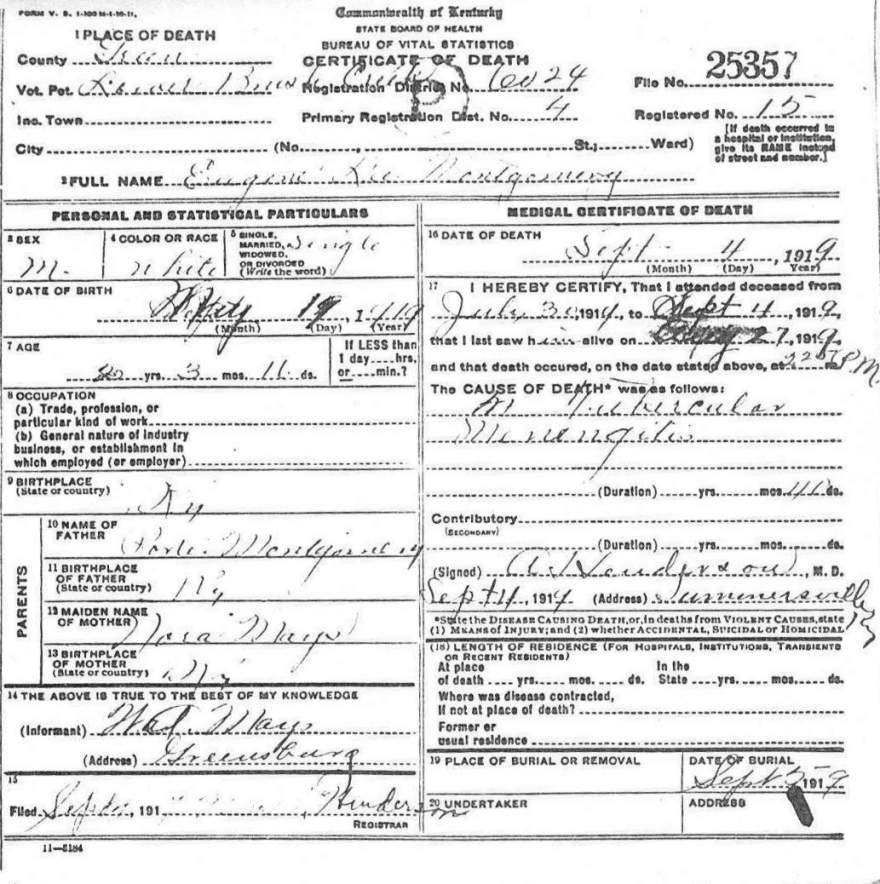 FORM V. S. 1-100 M-1-10-11.
Commonwealth of Kentucky
STATE BOARD OF HEALTH
BUREAU OF VITAL STATISTICS
CERTIFICATE OF DEATH
1 PLACE OF DEATH
County
Vot. Pct. Brush Creek Registration District No. 6024 File No. 25357
Inc. Town Primary Registration Dist. No. 4 Registered No. 15
City (No. , St.; Ward) [If death occurred in a hospital or institution, give its NAME instead of street and number.]
2 FULL NAME Eugene Montgomery
PERSONAL AND STATISTICAL PARTICULARS
3 SEX
M.
4 COLOR OR RACE
White
5 SINGLE, MARRIED, WIDOWED, OR DIVORCED (Write the word)
Single
6 DATE OF BIRTH
19, 1919
(Month) (Day) (Year)
7 AGE
yrs. 3 mos. 11 ds.
If LESS than 1 day hrs. or min.?
8 OCCUPATION
(a) Trade, profession, or
particular kind of work
(b) General nature of industry
business, or establishment in
which employed (or employer)
9 BIRTHPLACE
(State or country)
Ky
PARENTS
10 NAME OF FATHER
Montgomery
11 BIRTHPLACE OF FATHER
(State or country)
Ky
12 MAIDEN NAME OF MOTHER
Nora Mays
13 BIRTHPLACE OF MOTHER
(State or country)
Ky
14 THE ABOVE IS TRUE TO THE BEST OF MY KNOWLEDGE
(Informant) Mays
(Address) Greensburg
15
Filed , 191 Henderson
REGISTRAR
11—3184
MEDICAL CERTIFICATE OF DEATH
16 DATE OF DEATH
Sept 4, 1919
(Month) (Day) (Year)
17 I HEREBY CERTIFY, That I attended deceased from
July 30, 1919, to Sept 4, 1919,
that I last saw him alive on 27, 1919,
and that death occured, on the date stated above, at P.M.
The CAUSE OF DEATH* was as follows:
Tubercular
Menengitis
(Duration) yrs. mos. ds.
Contributory
(SECONDARY)
(Duration) yrs. mos. ds.
(Signed) Henderson, M. D.
Sept 4, 1919 (Address) Summersville Ky
*State the DISEASE CAUSING DEATH, or, in deaths from VIOLENT CAUSES, state
(1) MEANS of INJURY; and (2) whether ACCIDENTAL, SUICIDAL or HOMICIDAL
(18) LENGTH OF RESIDENCE (FOR HOSPITALS, INSTITUTIONS, TRANSIENTS
OR RECENT RESIDENTS)
At place of death yrs. mos. ds. In the State yrs. mos. ds.
Where was disease contracted,
if not at place of death?
Former or
usual residence
19 PLACE OF BURIAL OR REMOVAL
DATE OF BURIAL
Sept 5 1919
20 UNDERTAKER
ADDRESS